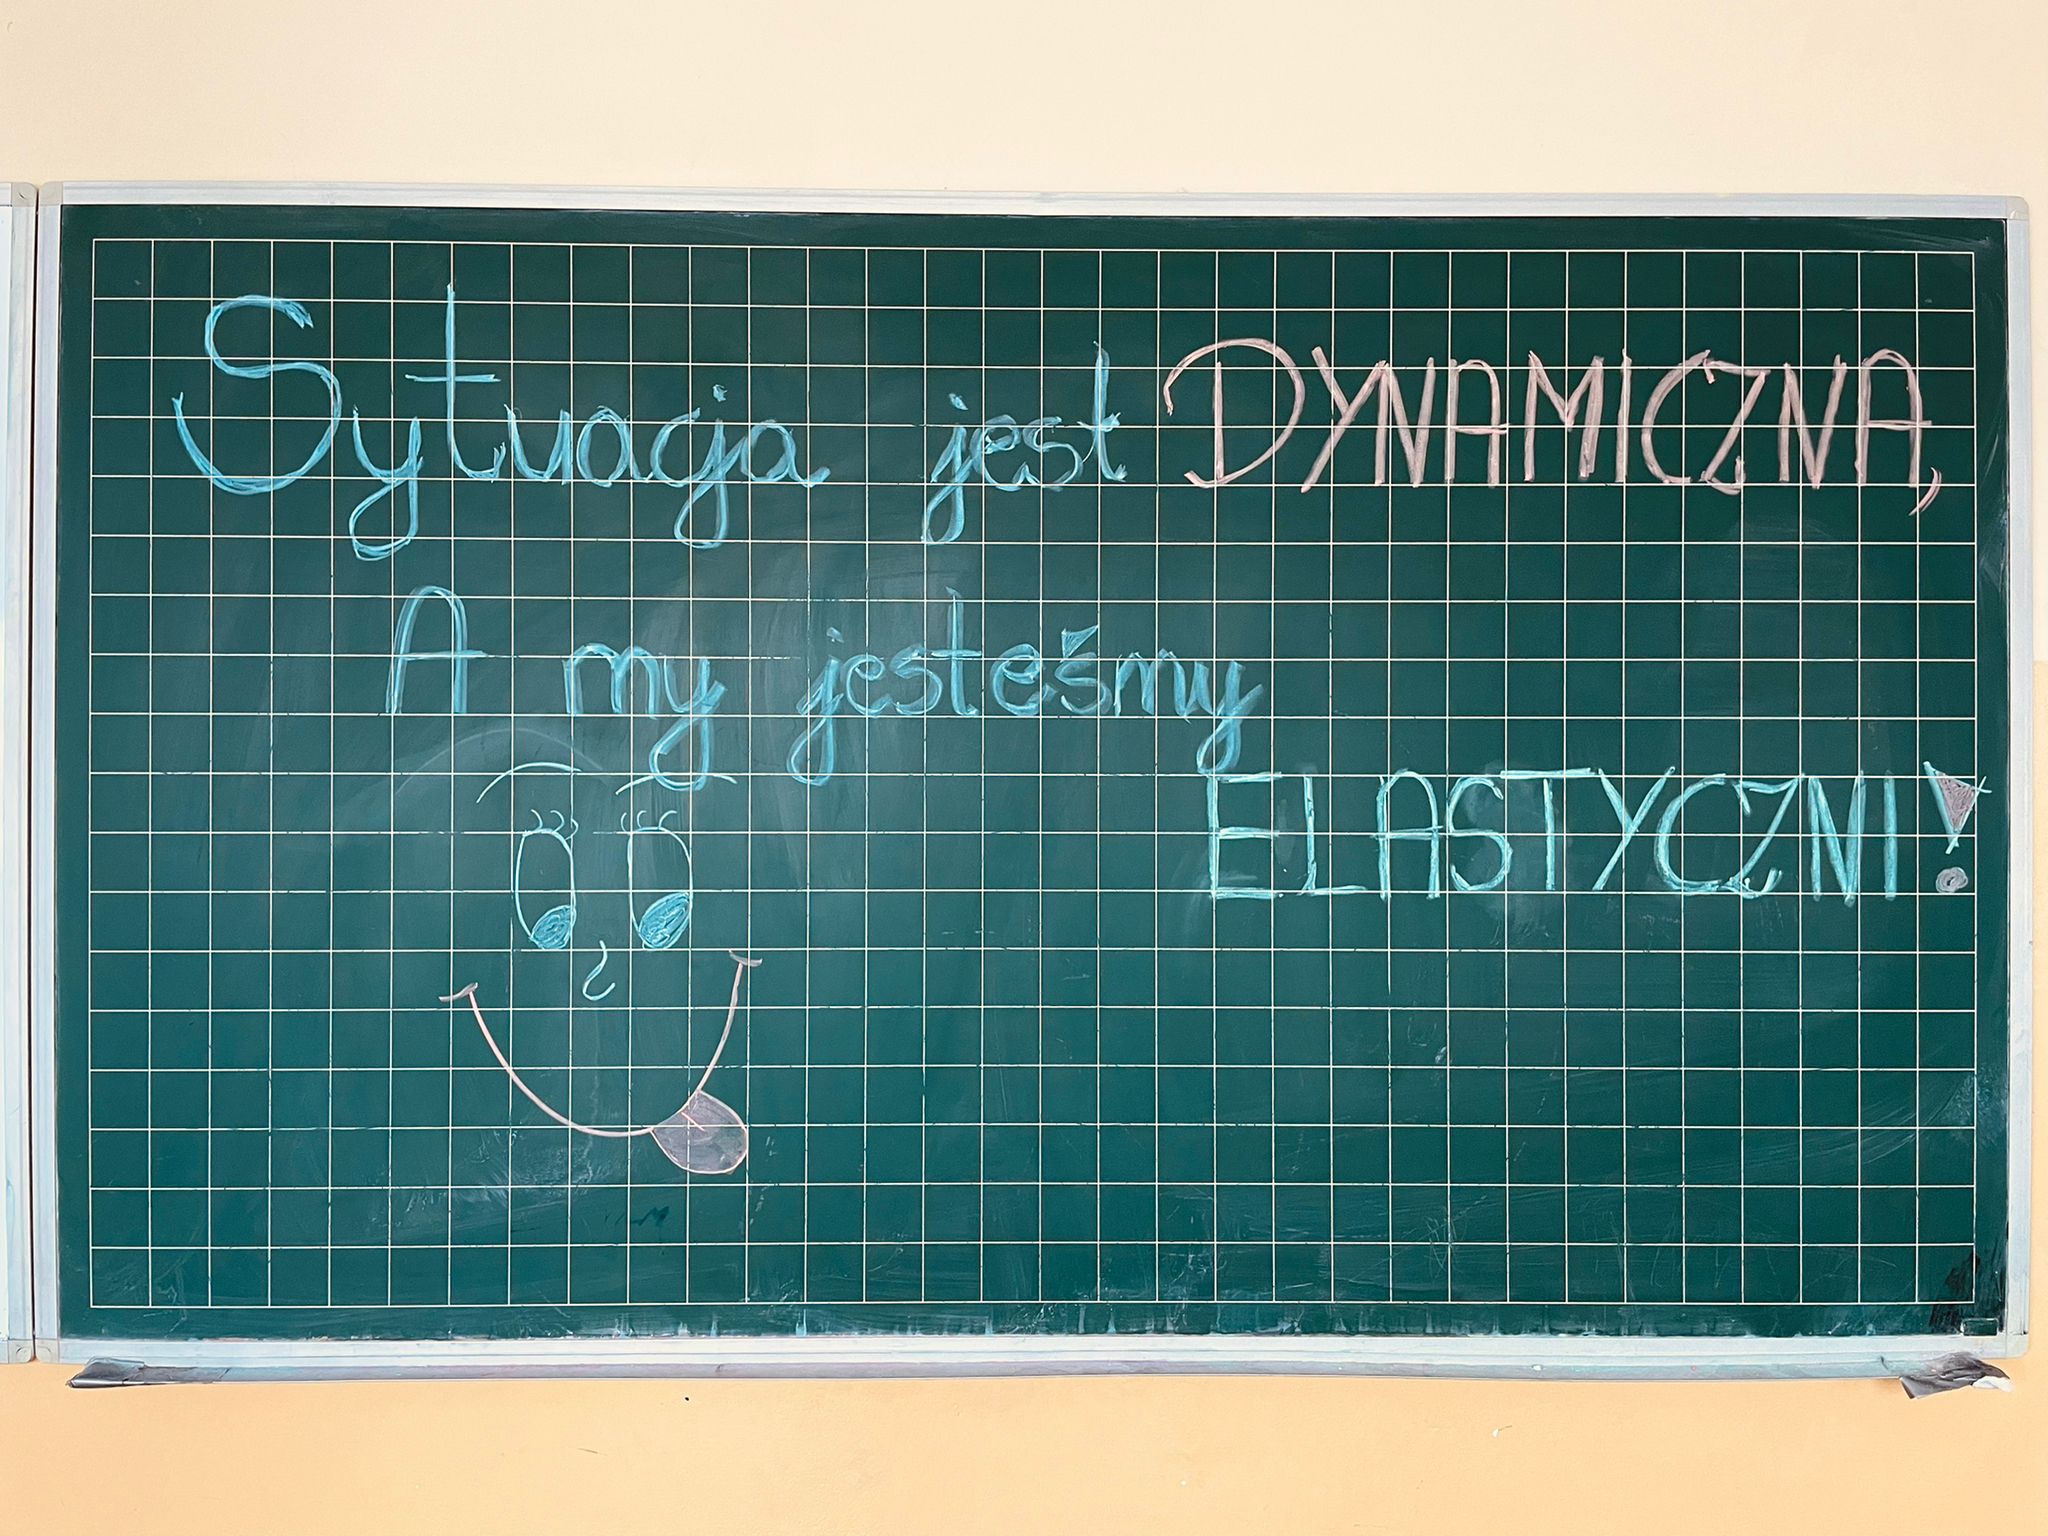 Sytuacja jest DYNAMICZNA,
A my jesteśmy
ELASTYCZNI!